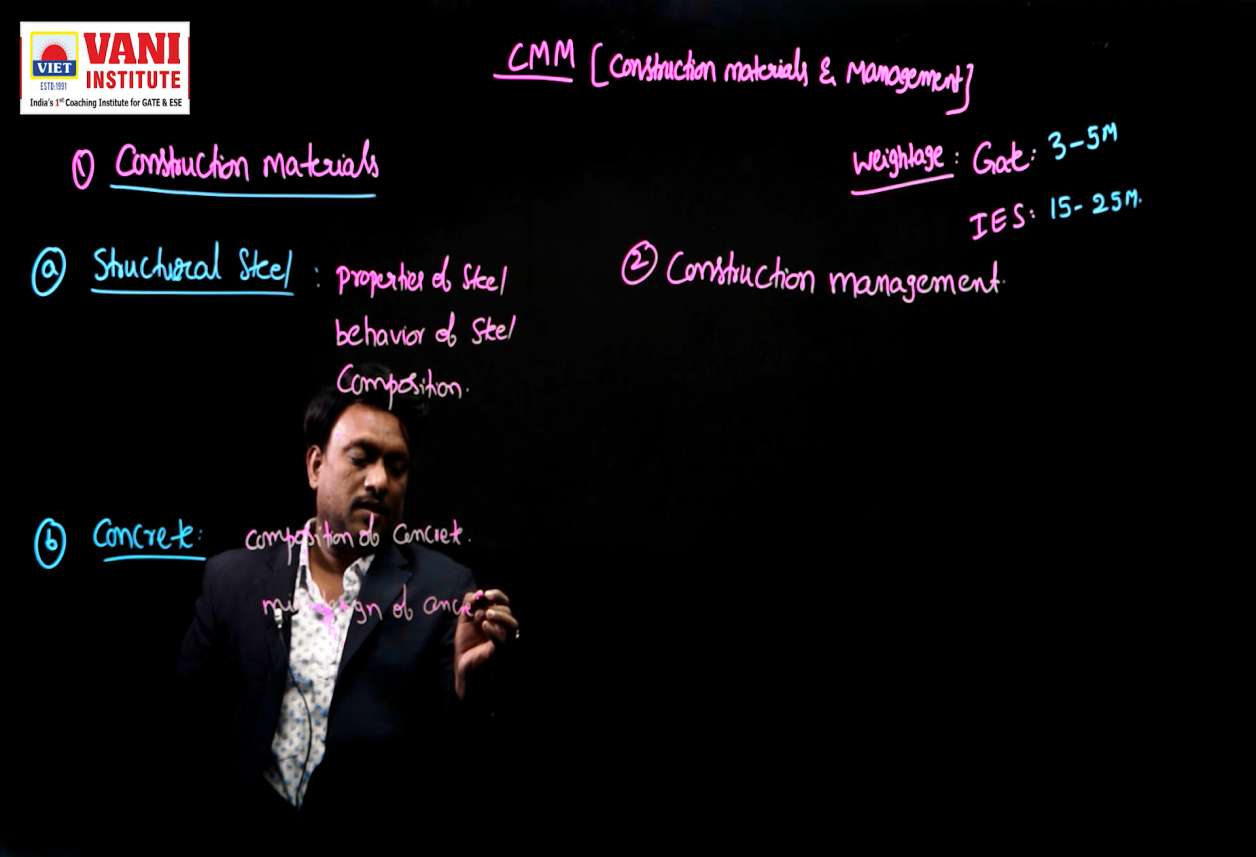 VANI
INSTITUTE
VIET
ESTD:1991
India's 1st Coaching Institute for GATE & ESE
CMM [Construction materials & Management]
Weightage: Gate: 3-5M
IES: 15-25M.
① Construction materials
ⓐ Structural Steel: properties of Steel
behavior of Steel
Composition.
ⓑ Concrete: composition of Concrete.
of
② Construction management.